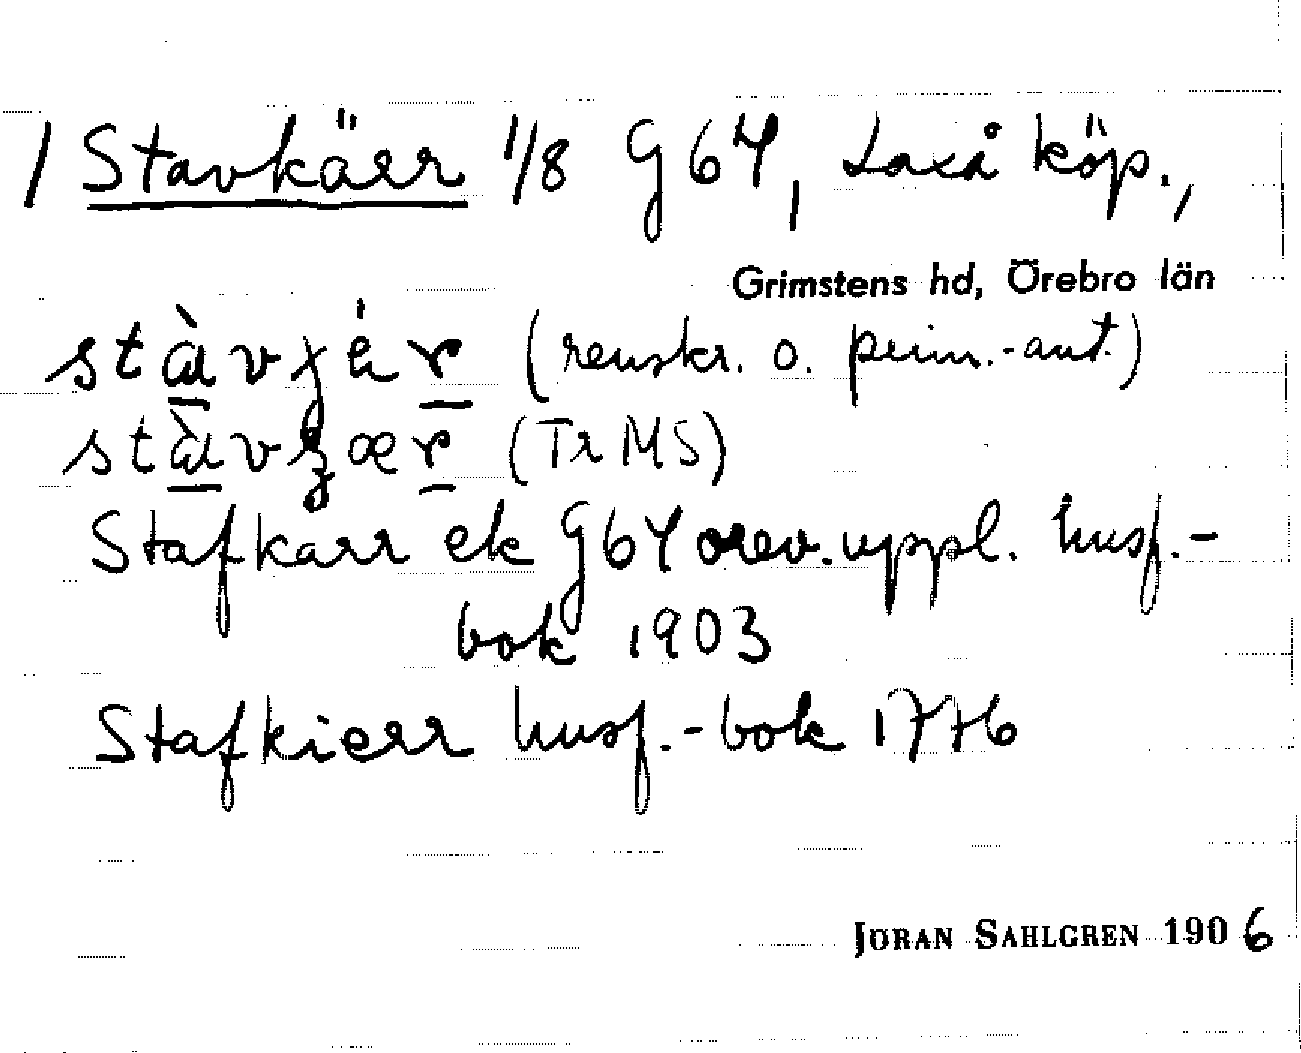 / Stavkärr 1/8 G64, Laxå köp.,
Grimstens hd, Örebro län
(renskr. o. prim.-ant.)
(Tr MS)
Stafkarr ek G64 orev. uppl. husf.-
bok 1903
Stafkierr husf.-bok 1776
JÖRAN SAHLGREN 1906